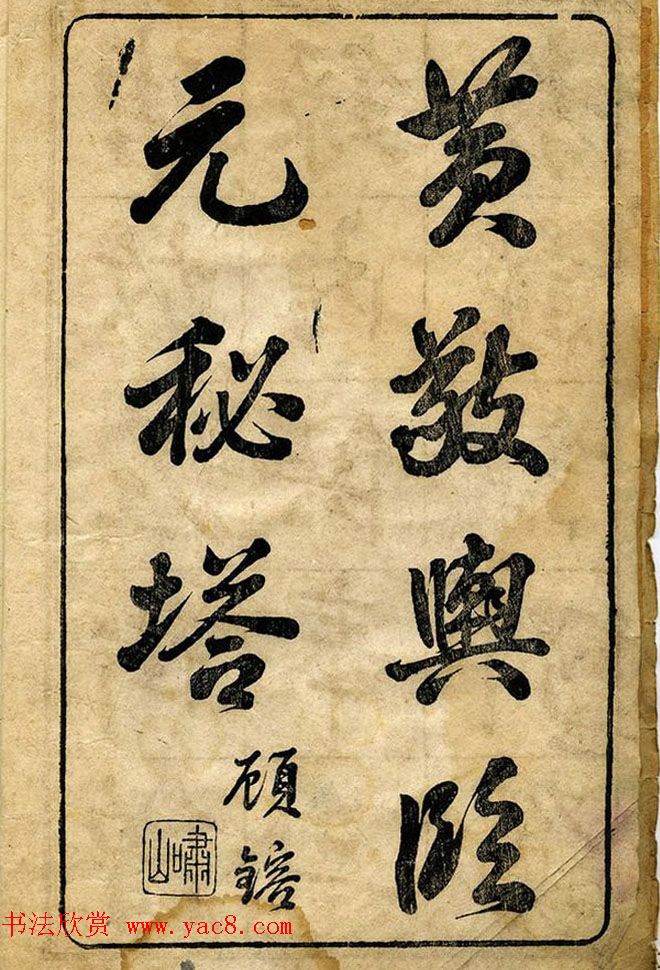 黄敬輿臨
元秘塔
顾鎔
嘯山
书法欣赏 www.yac8.com